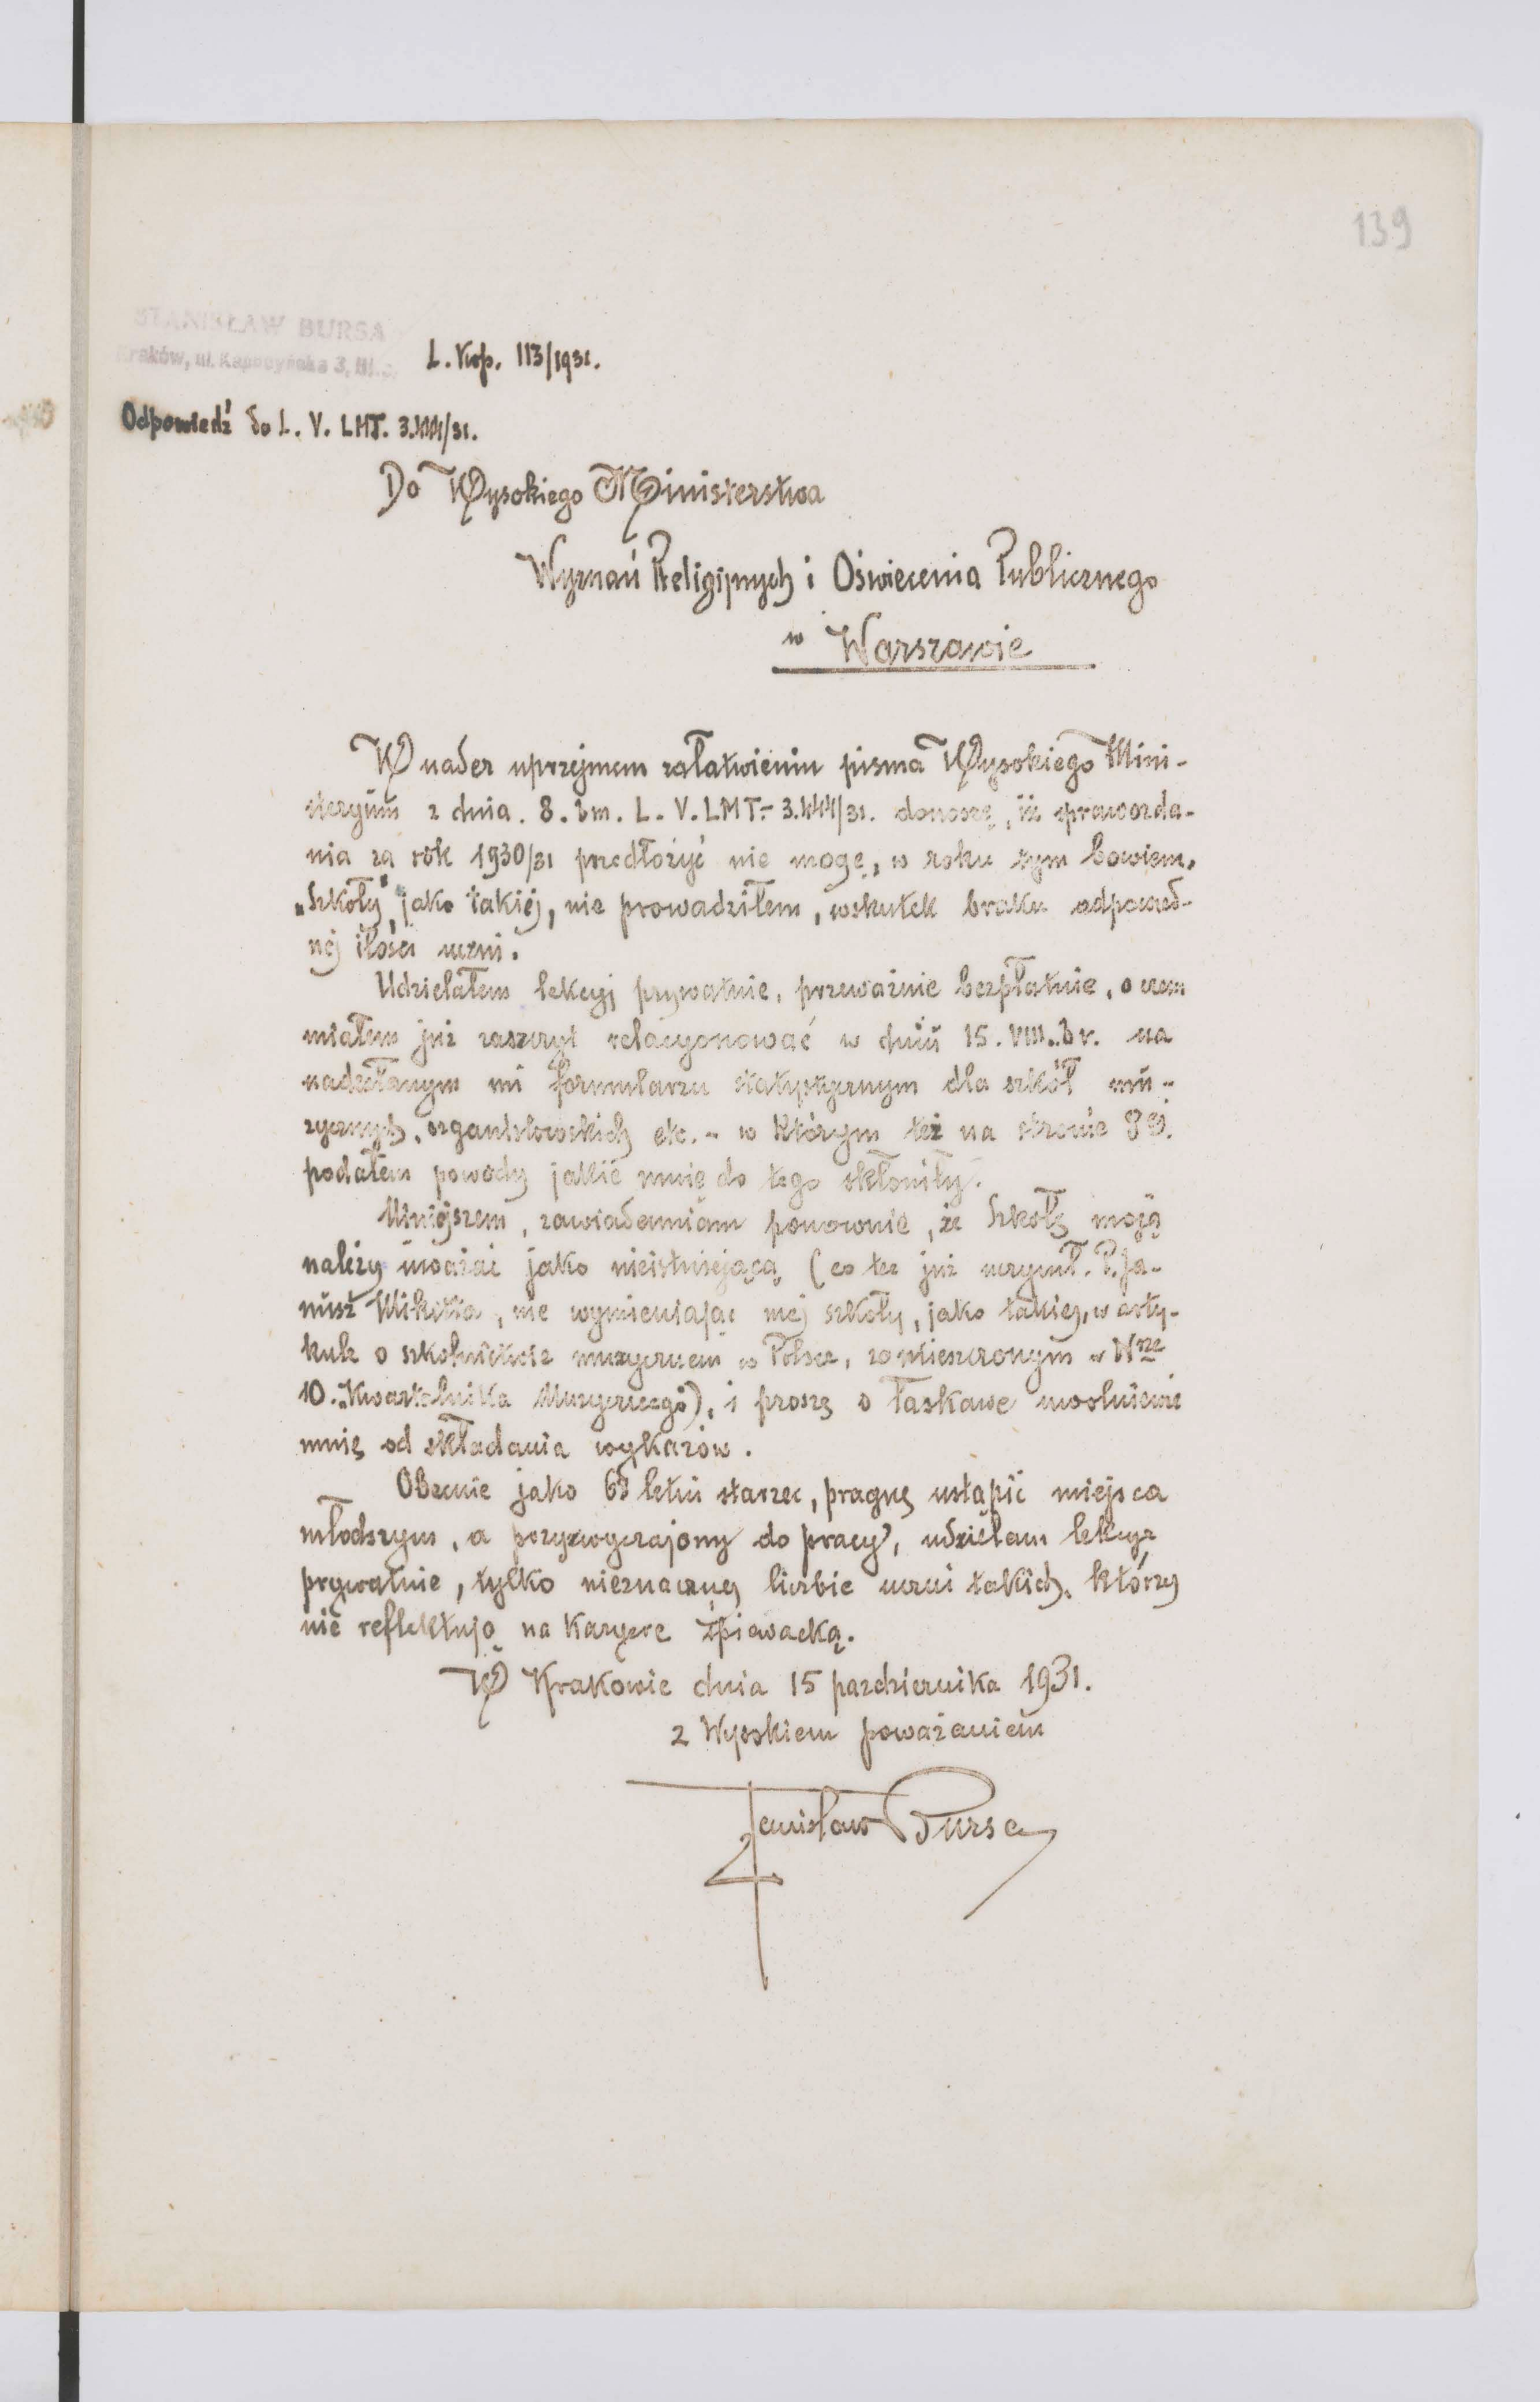 139
STANISŁAW BURSA
Kraków, ul. Kapucyńska 3, III. p.
L. Kop. 113/1931.
Odpowiedź do L. V. LMT. 3.444/31.
Do Wysokiego Ministerstwa
Wyznań Religijnych i Oświecenia Publicznego
w Warszawie
W nader uprzejmem załatwieniu pisma Wysokiego Mini-
steryum z dnia. 8. bm. L. V. LMT.- 3.444/31. donoszę, iż sprawozda-
nia za rok 1930/31 przedłożyć nie mogę, w roku tym bowiem,
„Szkoły" jako takiej, nie prowadziłem, wskutek braku odpowied-
nej ilości uczni.
Udzielałem lekcyj prywatnie, przeważnie bezpłatnie, o czem
miałem już zaszczyt relacyonować w dniu 15. VIII. br. na
nadesłanym mi formularzu statystycznym dla szkół mu-
zycznych, organistowskich etc. - w którym też na stronie 8ej.
podałem powody jakie mnie do tego skłoniły.
Niniejszem, zawiadamiam ponownie, że Szkołę moją
należy uważać jako nieistniejącą (co też już uczynił. P. Ja-
nusz Miketta, nie wymieniając mej szkoły, jako takiej, w arty-
kule o szkolnictwie muzycznem w Polsce, zamieszczonym w Nrze
10. „Kwartalnika Muzycznego), i proszę o łaskawe uwolnienie
mnie od składania wykazów.
Obecnie jako letni starzec, pragnę ustąpić miejsca
młodszym, a przyzwyczajony do pracy, udzielam lekcye
prywatnie, tylko nieznacznej liczbie uczni takich, którzy
nie reflektują na karyerę śpiewacką.
W Krakowie dnia 15 pazdziernika 1931.
z Wysokiem poważaniem
Stanisław Bursa